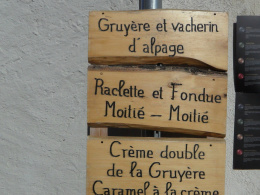 Gruyère et vacherin
d'alpage
Raclette et Fondue
Moitié – Moitié
Crème double
de la Gruyère
Caramel à la crème